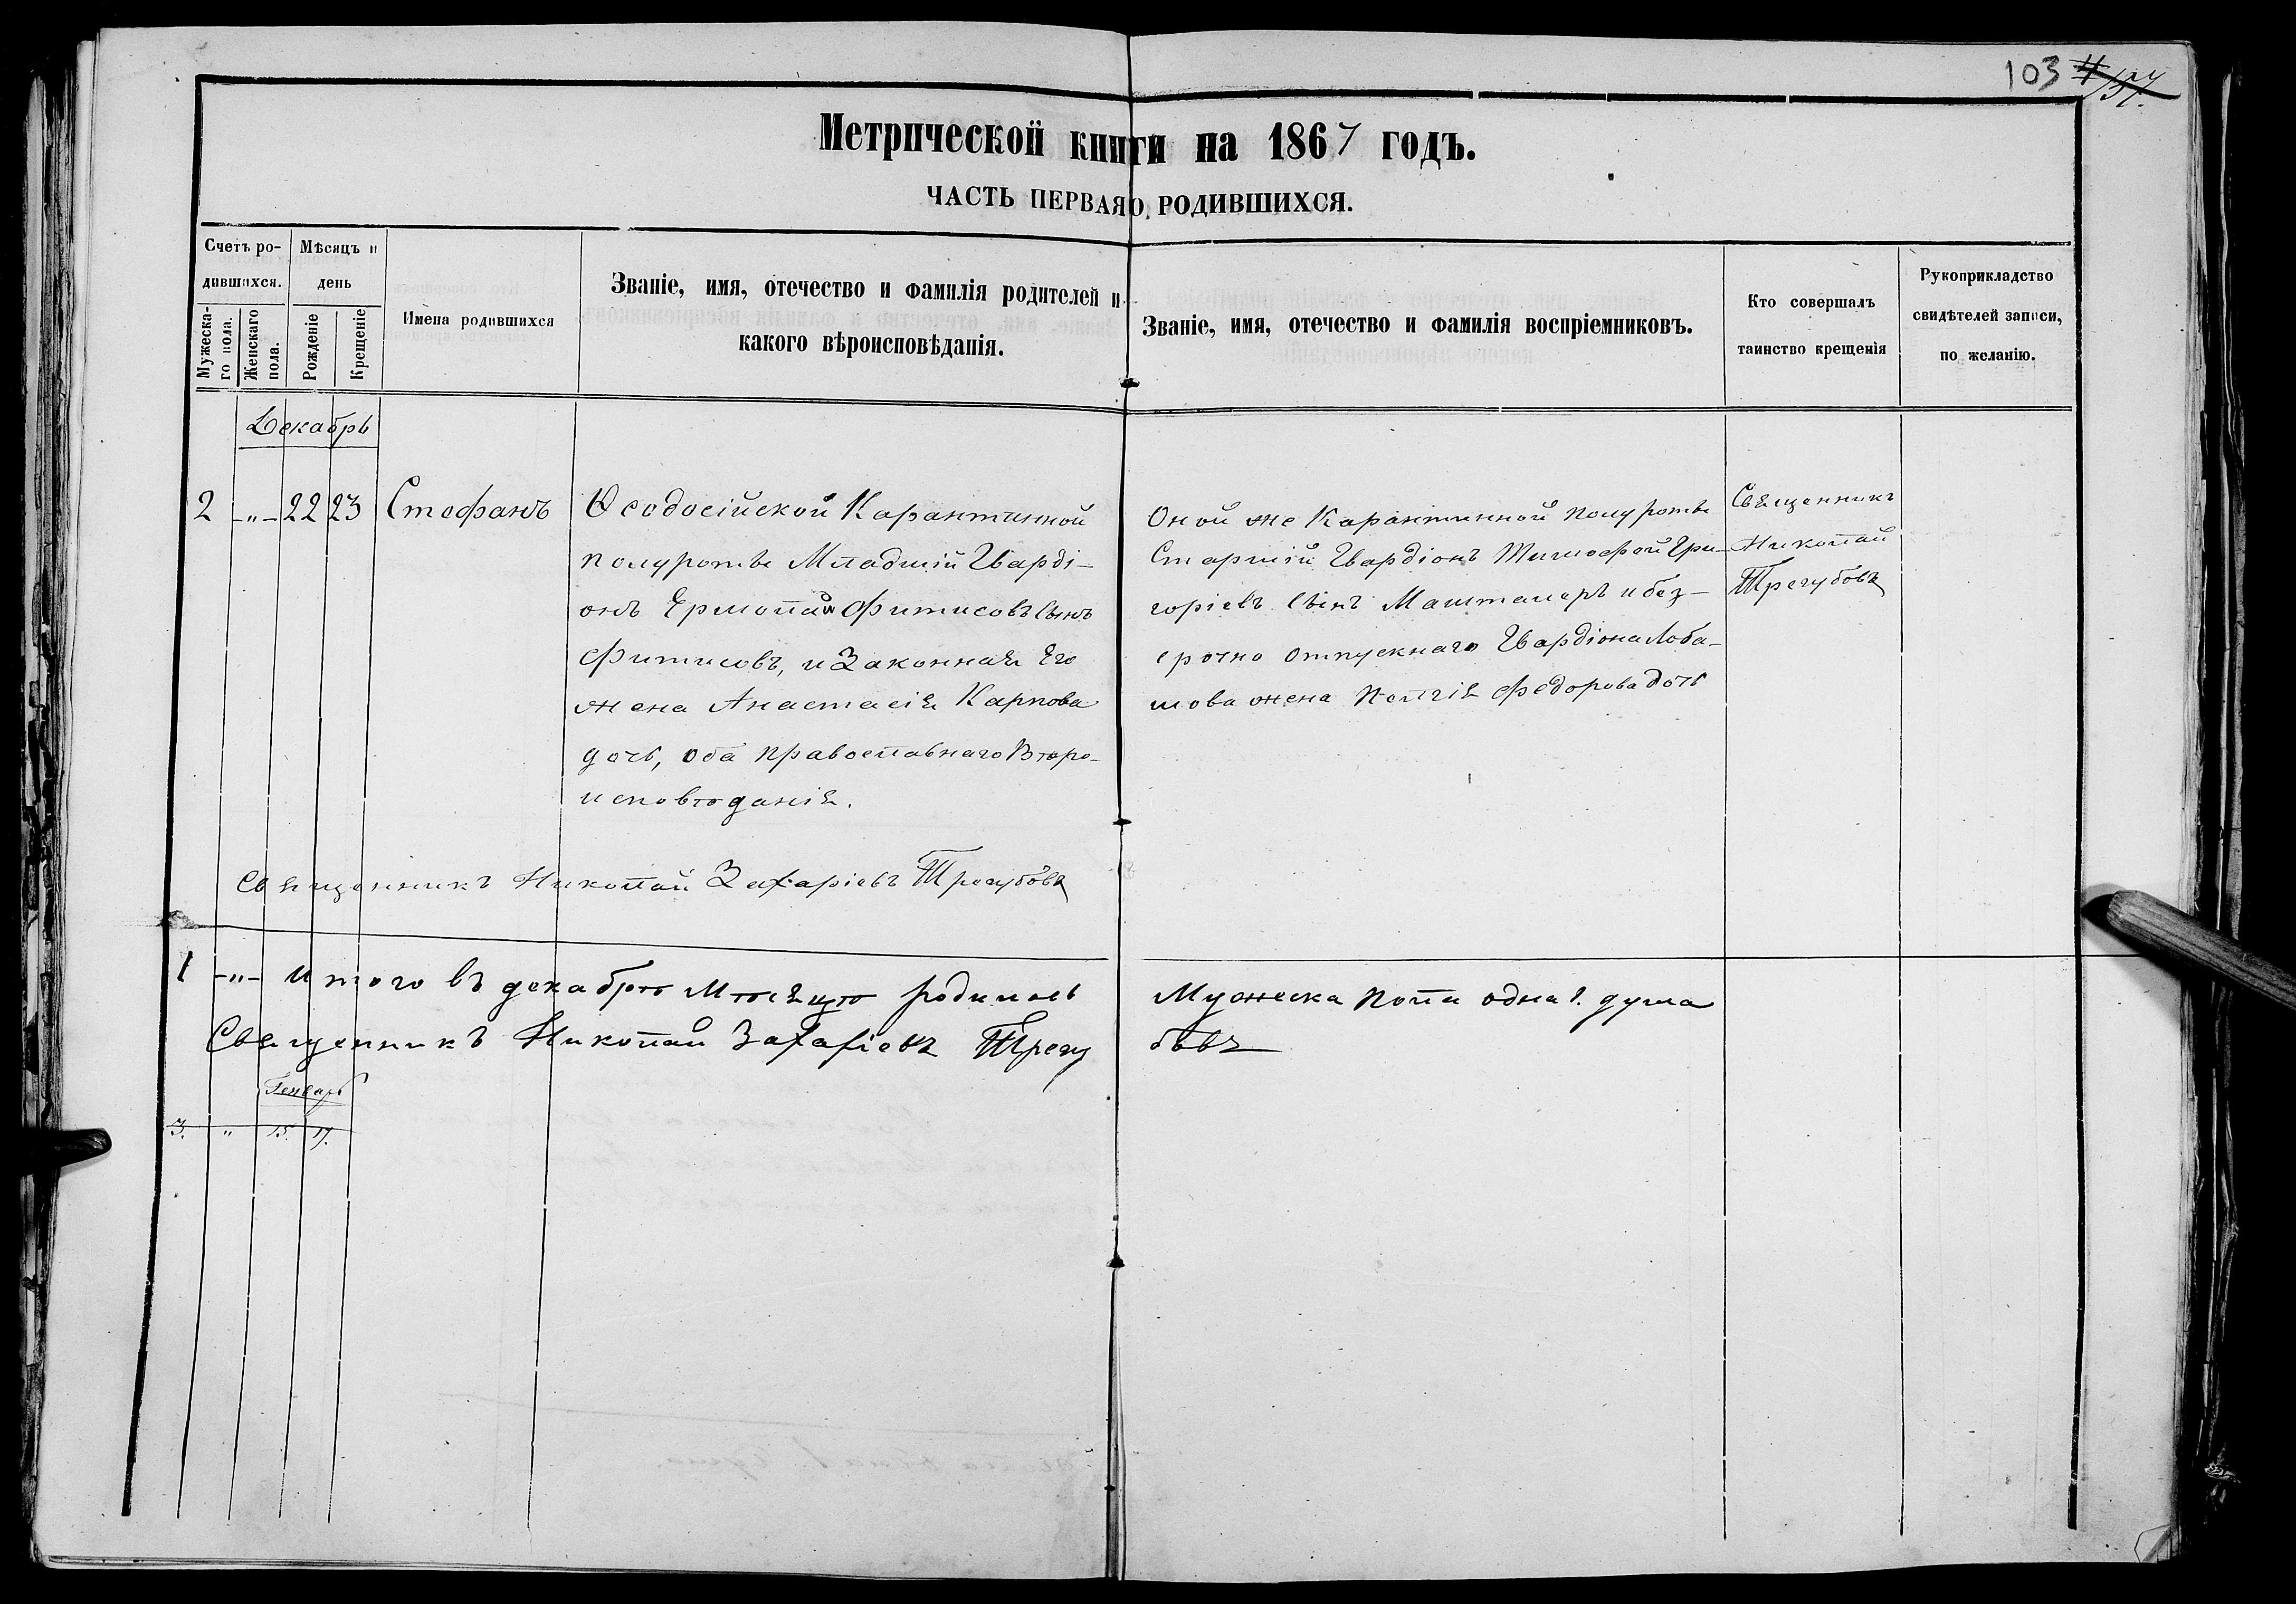 103
Метрической книги на 1867 годъ.
ЧАСТЬ ПЕРВАЯ О РОДИВШИХСЯ.
Счетъ ро-
дившихся.
Мужеска-
го пола.
Женскаго
пола.
Мѣсяцъ и
день
Рожденіе
Крещеніе
Имена родившихся
Званіе, имя, отечество и фамилія родителей и
какого вѣроисповѣданія.
Званіе, имя, отечество и фамилія воспріемниковъ.
Кто совершалъ
таинство крещенія
Рукоприкладство
свидѣтелей записи,
по желанію.
Декабрь
2 -„- 22 23 Стефанъ
Ѳеодосійской Карантинной
полуроты Младшій Гварді-
онъ Ермолай Фитисовъ Сынъ
Фитисовъ, и Законная Его
жена Анастасія Карпова
дочь, оба православнаго Вѣро-
исповѣданія.
Оной же Карантинной полуроты
Старшій Гвардіонъ Тимофей Гри-
горіевъ Сынъ Машталеръ и без-
срочно отпускнаго Гвардіона Лоба-
шова жена Пелагія Федорова дочь
Священникъ
Николай
Трегубовъ
Священникъ Николай Захаріевъ Трегубовъ
1 -„- Итого въ декабрѣ Мѣсяцѣ родилось Мужеска пола одна 1. душа
Священникъ Николай Захаріевъ Трегубовъ
Генварь
3. „ 15. 17.